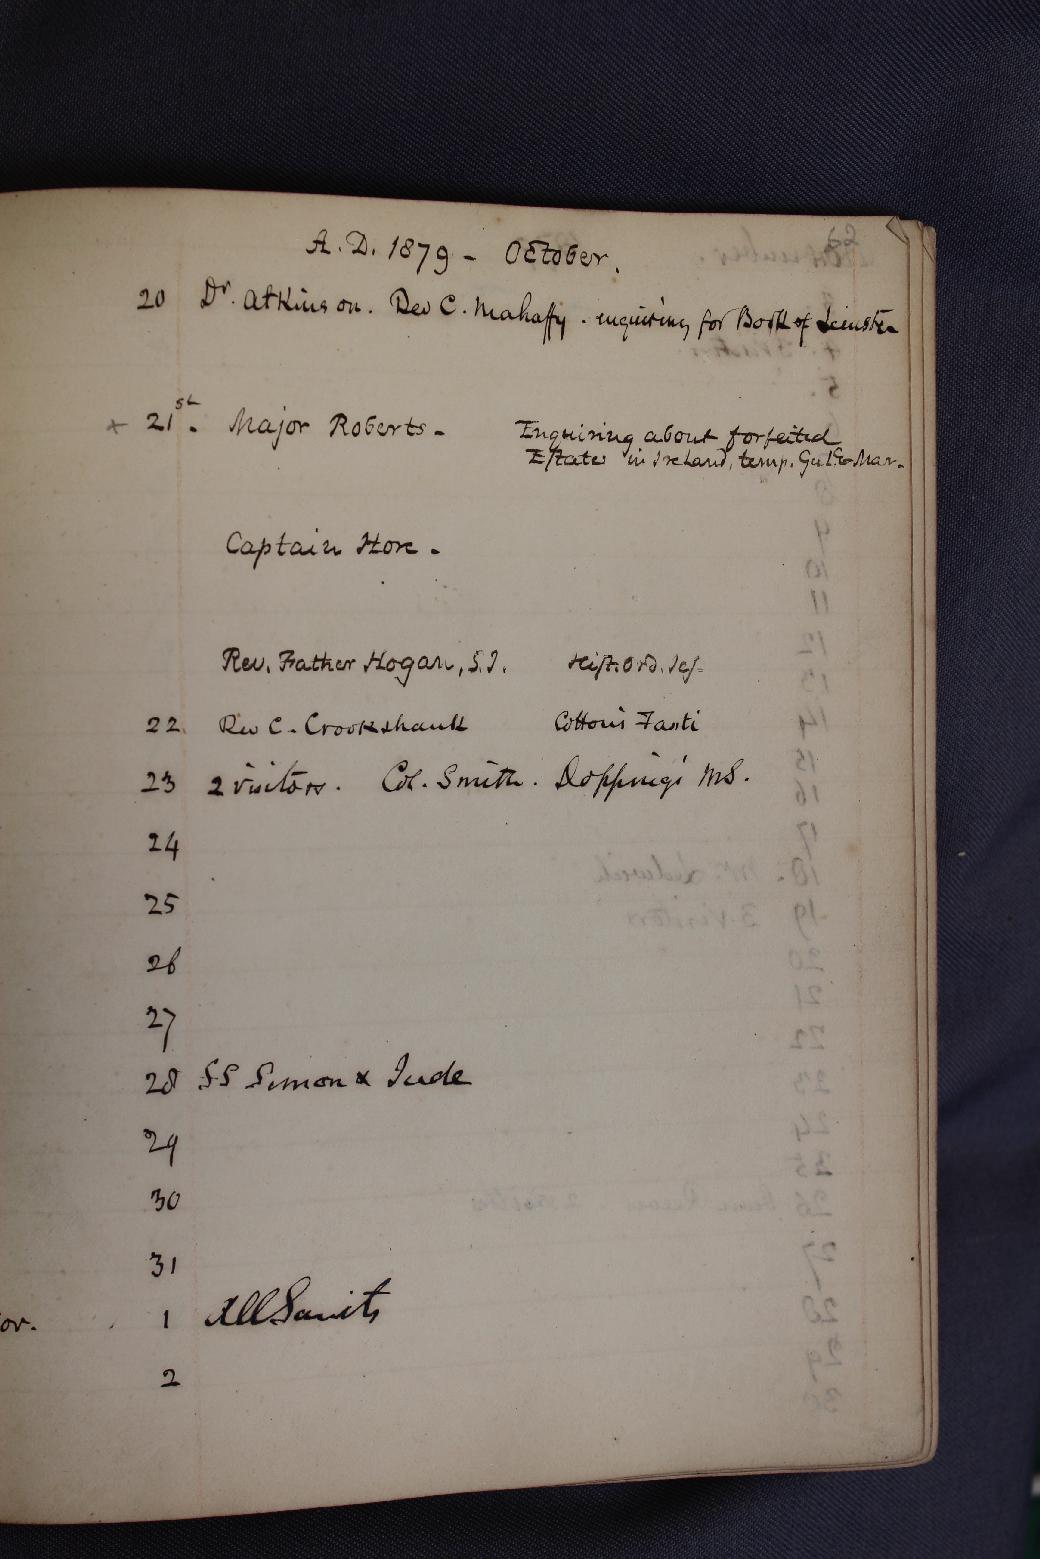 A.D. 1879 - October.
20 Dr. Atkinson. Rev C. Mahaffy. enquiring for Book of Leinster
x 21st. Major Roberts - Enquiring about forfeited
Estates in Ireland, temp. Gul. & Mar.
Captain Hore -
Rev. Father Hogan, S.J. Hist. Ord. Jes.
22 Rev C. Crookshank Cotton's Fasti
23 2 visitors. Col. Smith. Dopping's MS.
24
25
26
27
28 SS Simon & Jude
29
30
31
or. 1 All Saints
2